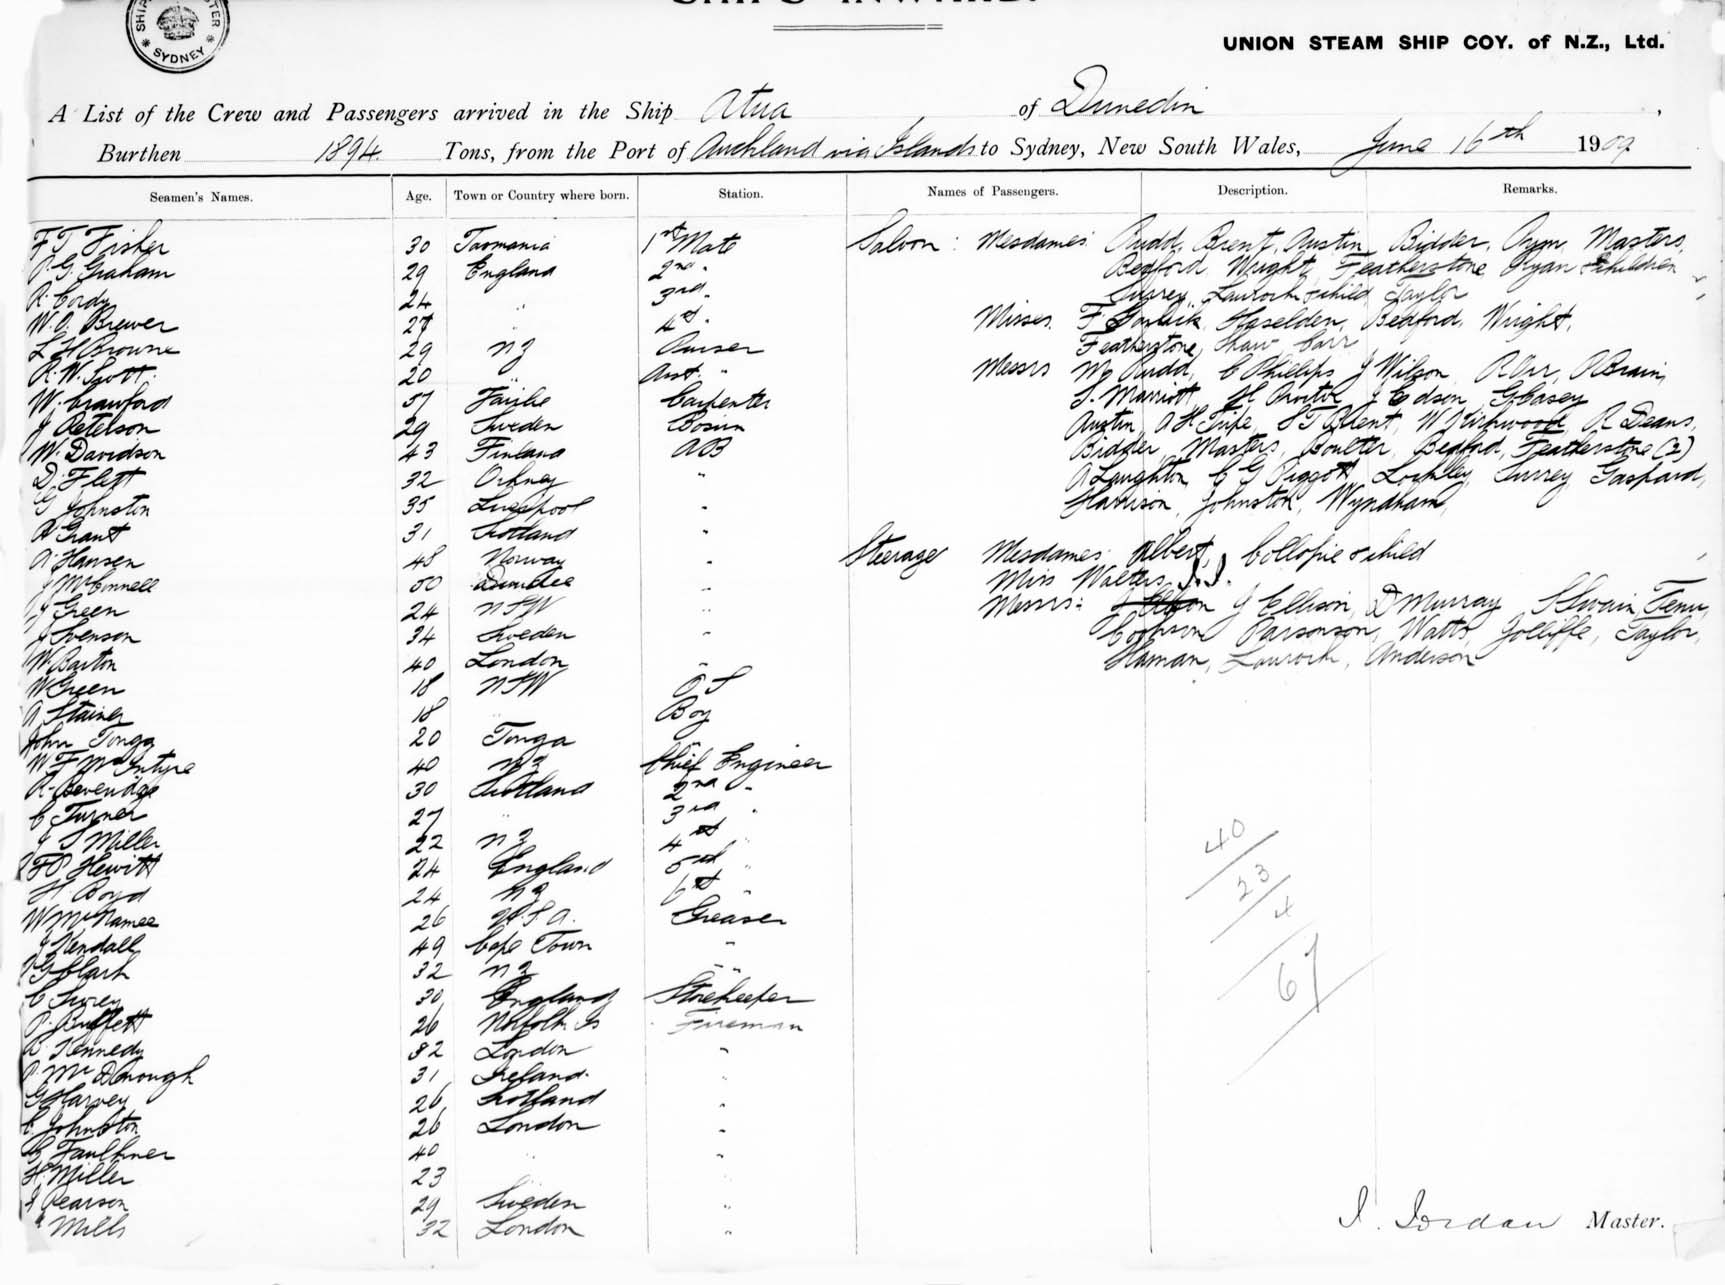 SHIPS INWARD.
SYDNEY
UNION STEAM SHIP COY. of N.Z., Ltd.
A List of the Crew and Passengers arrived in the Ship Atua of Dunedin,
Burthen 1894 Tons, from the Port of Auckland via Islands to Sydney, New South Wales, June 16th 1909
Seamen's Names. Age. Town or Country where born. Station. Names of Passengers. Description. Remarks.
F T Fisher 30 Tasmania 1st Mate Saloon: Mesdames: Rudd, Brent, Austin, Bidder, Pym, Masters,
P. G. Graham 29 England 2nd " Bedford, Wright, Featherstone Ryan & children
R. Cordy 24 " 3rd " Surrey, Laurock & child Taylor
W. O. Brewer 27 " 4th " Misses F Haselden, Bedford, Wright,
L H Browne 29 NZ Purser Featherstone, Shaw Carr
R. W. Scott 20 " Asst. " Messrs Wm Rudd, C Phillips J Wilson R Orr, R Brain,
W. Crawford 57 Carpenter S. Marriott, H Proctor J Edson, G Casey
J Peterson 29 Sweden Bosun Austin, A H Tripe, S T Brent, W J Kirkwood, R Deans,
W. Davidson 43 Finland AB Bidder, Masters, Boulter, Bedford, Featherstone (2)
D Flett 32 Orkney " A Laughton, C G Piggott Lockley, Surrey Gaspard,
G Johnston 35 Liverpool " Harrison, Johnston, Wyndham,
A Grant 31 Scotland "
A. Hansen 48 Norway " Steerage Mesdames: Albert, Collopie & child
J McConnell 50 Dundee " Miss Walters
J Green 24 NSW " Messrs: J Ellison, D Murray S Swain, Temu,
J Svenson 34 Sweden " Cookson Parsonson, Watts, Jolliffe, Taylor,
W. Barton 40 London " Haman, Laurock, Anderson
W Green 18 NSW O S
A Stainer 18 " Boy
John Tonga 20 Tonga "
W F McIntyre 40 NZ Chief Engineer
R. Beveridge 30 Scotland 2nd "
C Turner 27 " 3rd "
J S Miller 22 NZ 4th "
F P Hewitt 24 England 5th "
H. Boyd 24 NZ 6th "
W McNamee 26 U.S.A. Greaser
J Kendall 49 Cape Town "
G Clark 32 NZ "
C Furey 30 England Storekeeper
P. Buffett 26 Norfolk Is Fireman
B. Kennedy 32 London "
P. McDonough 31 Ireland "
G Harvey 26 Scotland "
C. Johnston 26 London "
C Faulkner 40 " "
H. Miller 23
J Pearson 29 Sweden "
" Mills 32 London "
40
23
4
67
I. Jordan Master.